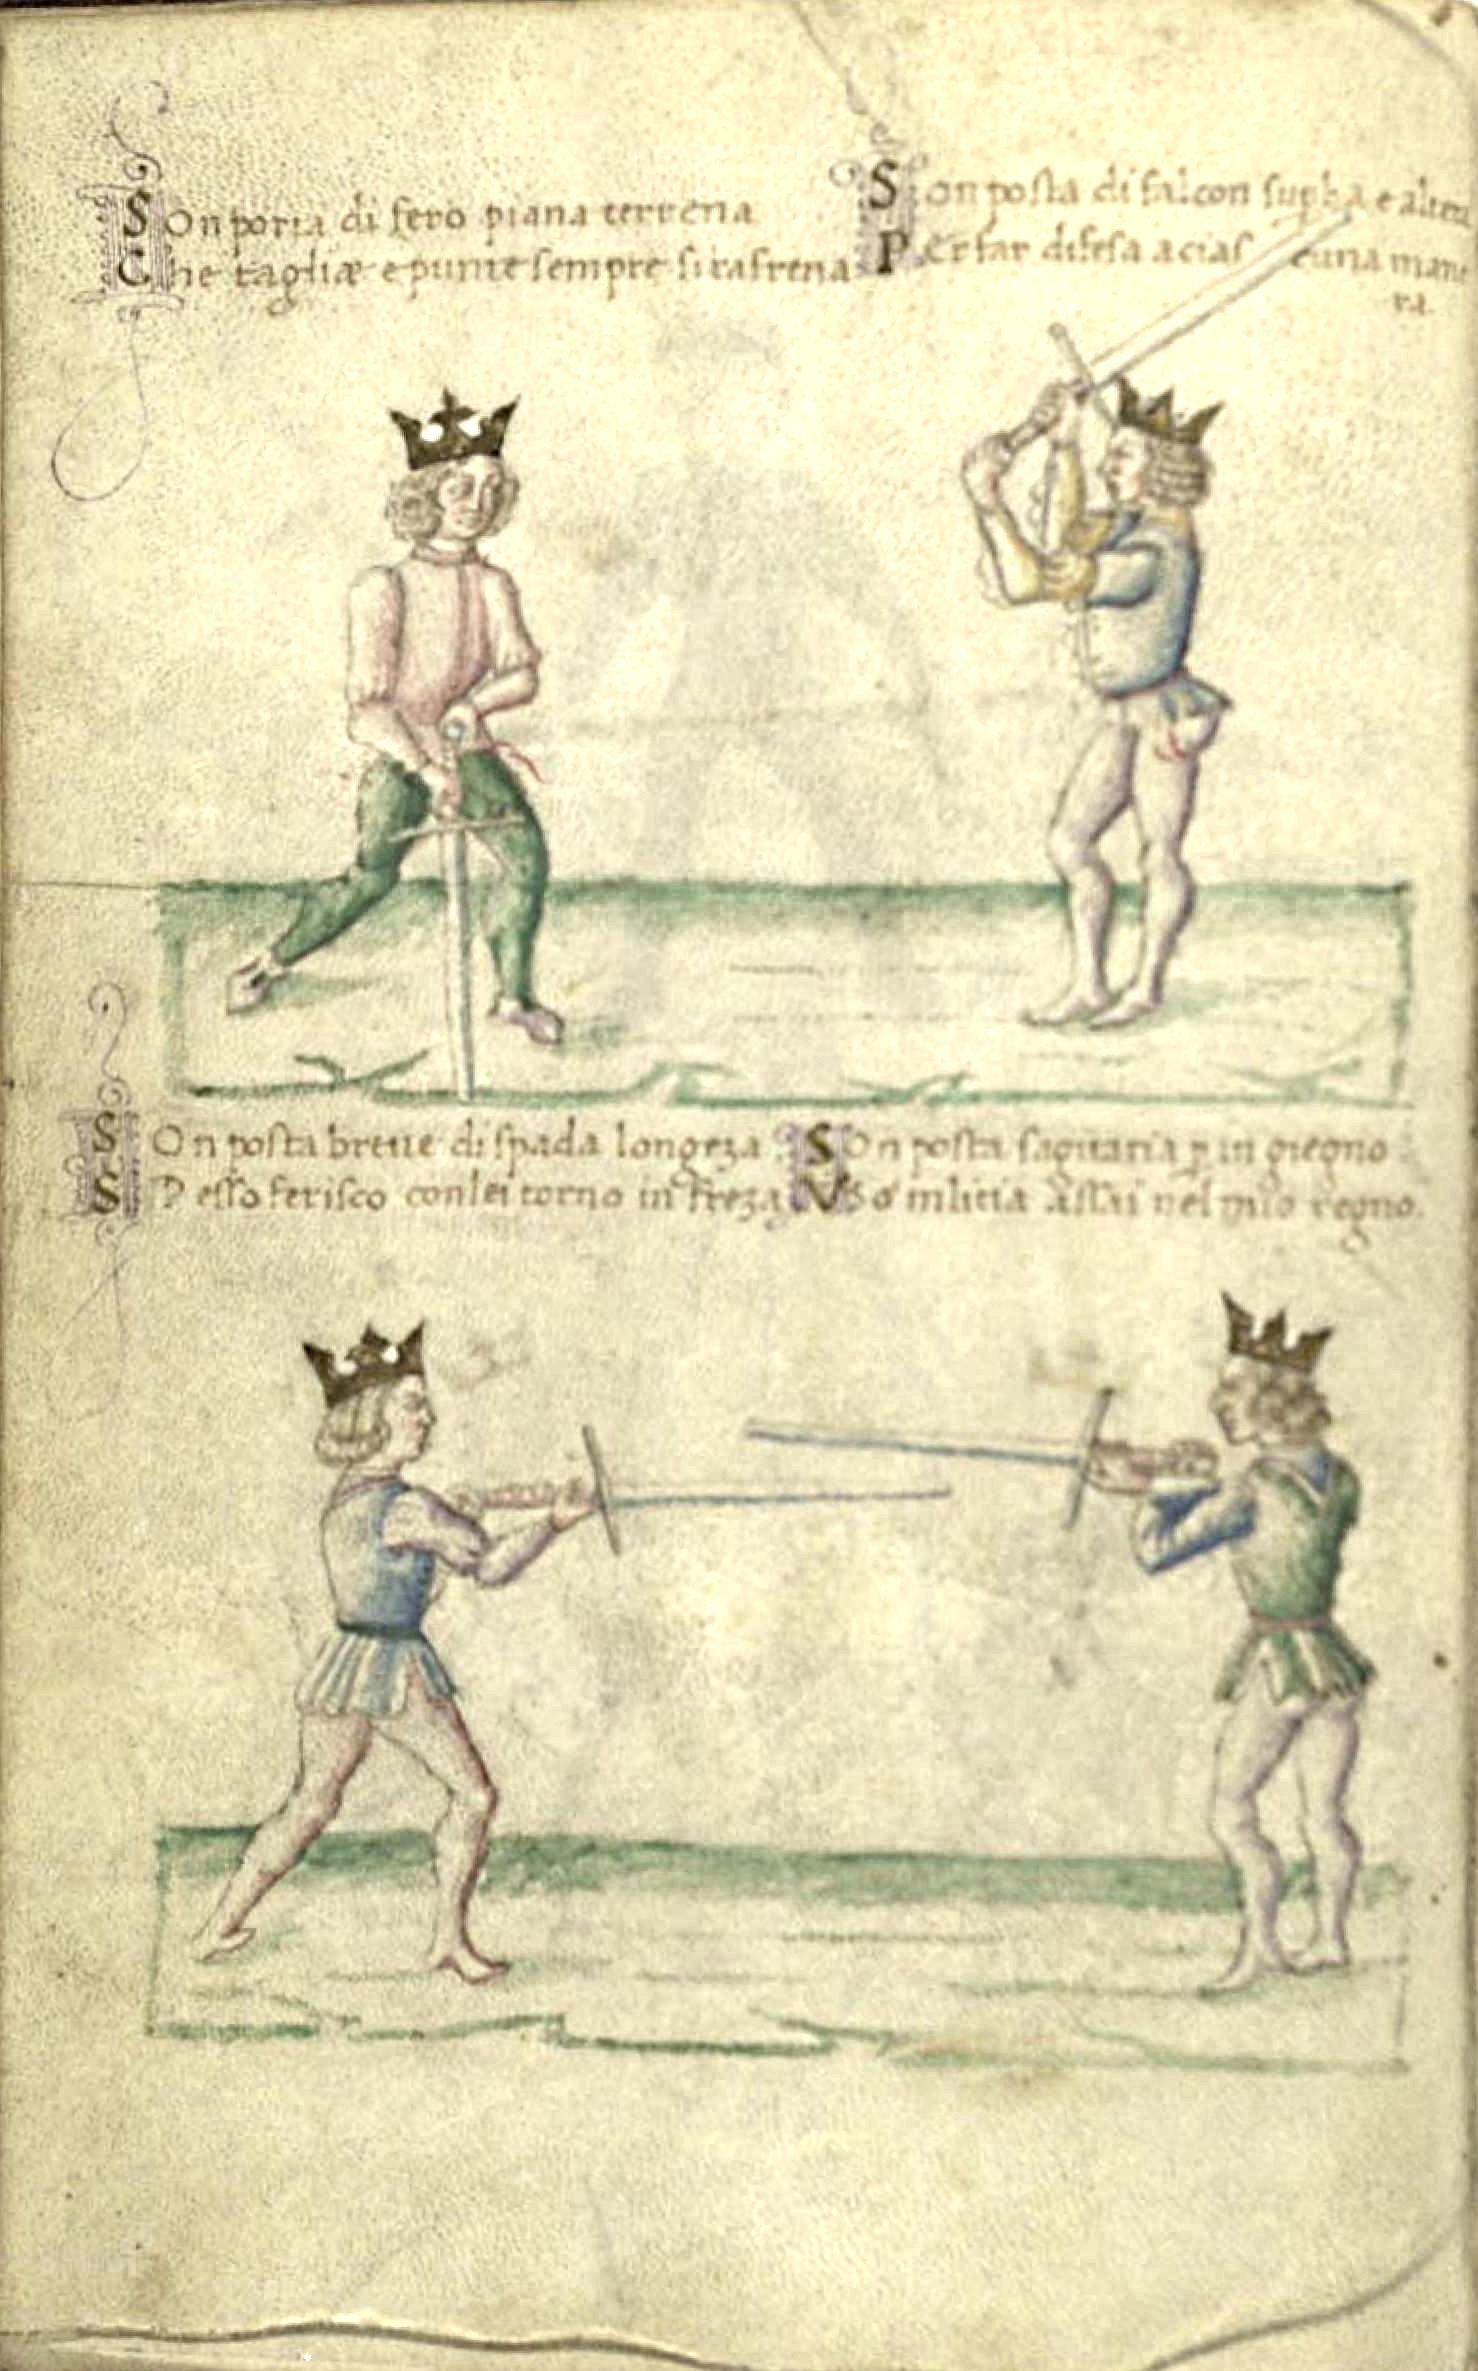 Son porta di fero piana terrena
Che tagliæ e punte sempre si rafrena
Son posta di falcon supba e altera
Per far difesa a cias euna mane
ra.
Son posta breue di spada longeza
Spesso ferisco con lei torno in freza
Son posta sagitaria p in giegno
Vso militia assai nel mio regno.